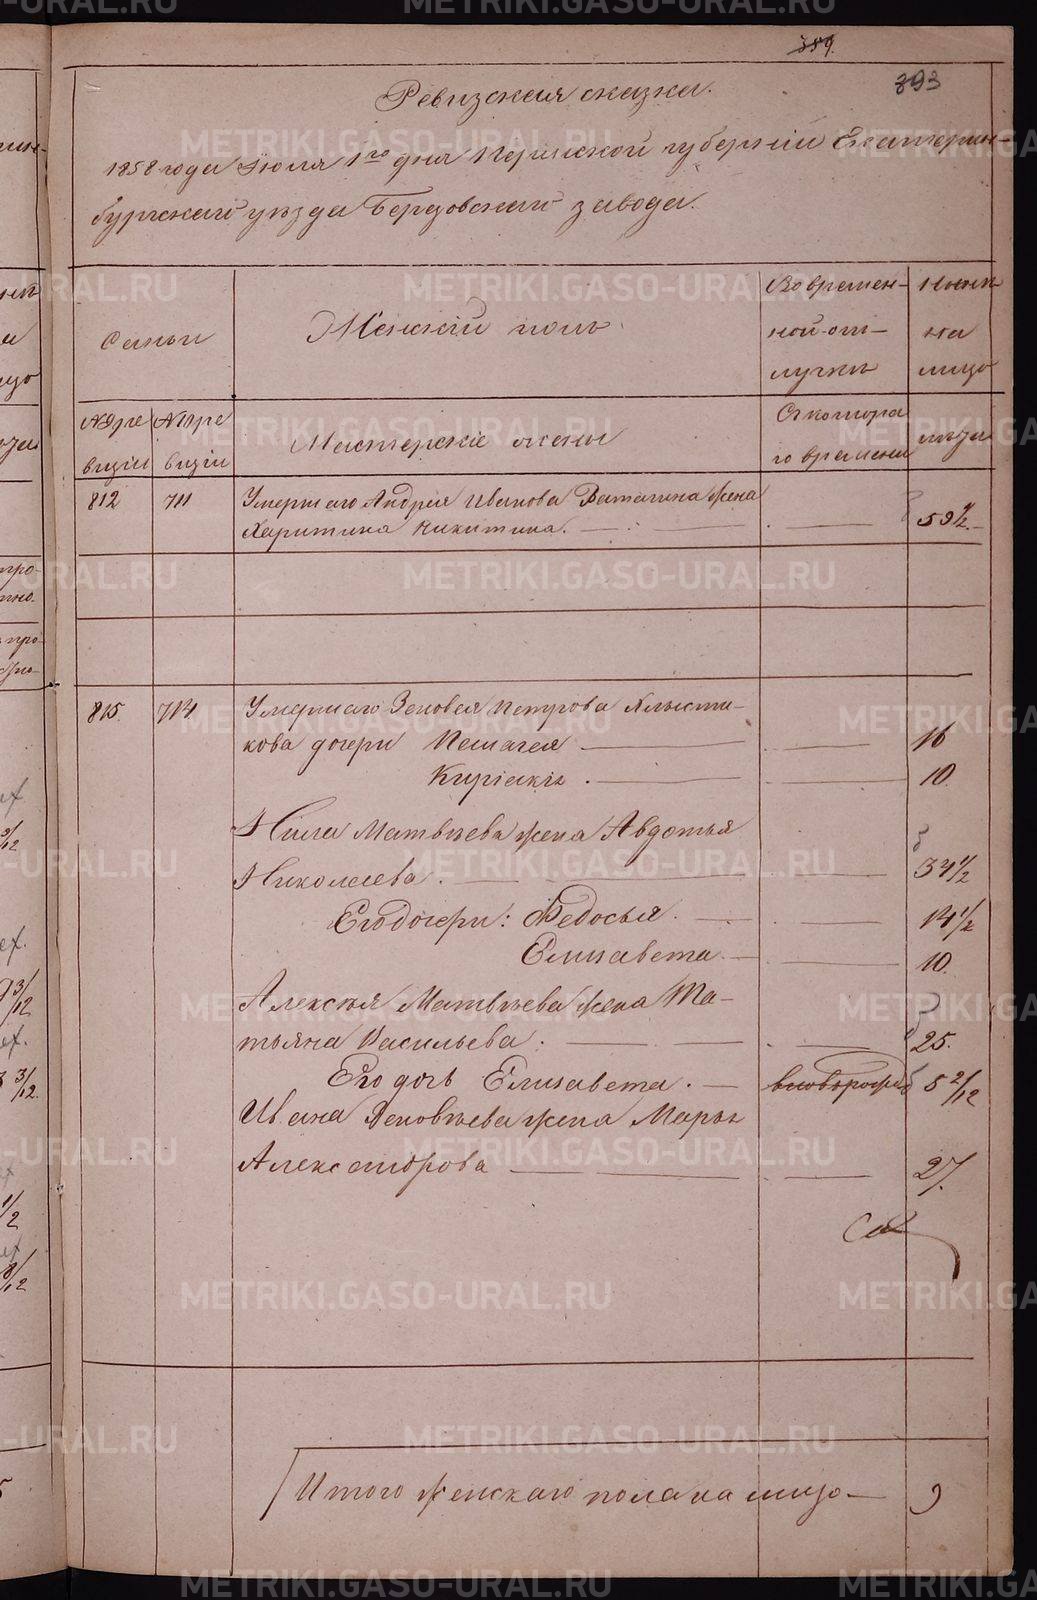 389.
393
Ревизская сказка.
1858 года Июля 1го дня Пермской губерніи Екатерин-
бургскаго уѣзда Березовскаго завода.
Семьи
Женскій полъ.
Во времен-
ной от-
лучкѣ
Нынѣ
на
лицо
№ 9 ре
визіи
№ 10 ре
визіи
Мастерскіе жены
Съ котора
го времени
лѣта
812 711 Умершаго Андрея Иванова жена
Харитина Никитина. 59 1/2
815. 714 Умершаго Зеновея Петрова Хлысти-
кова дочери Пелагея 16
10.
Нила Матвѣева жена Авдотья
Николаева. 34 1/2
Его дочери: Федосья. 14 1/2
Елизавета. 10.
Алексѣя Матвѣева жена Та-
тьяна Васильева. 25.
Его дочь Елизавета. вновьрожд 5 2/12
Ивана Зеновѣева жена Марья
Александрова 27.
Итого женскаго пола на лицо 9
METRIKI.GASO-URAL.RU